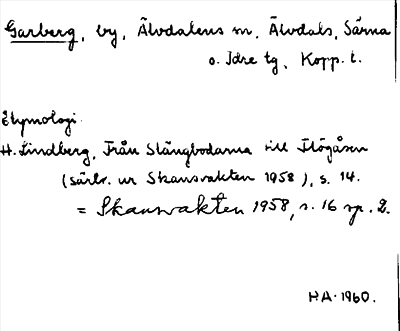 Garberg, by, Älvdalens sn, Älvdals, Särna
o. Idre tg, Kopp. l.
Etymologi.
H. Lindberg, Från Stängbodarna till Flögåsen
(särtr. ur Skansvakten 1958), s. 14.
= Skansvakten 1958, s. 16 sp. 2.
HA. 1960.